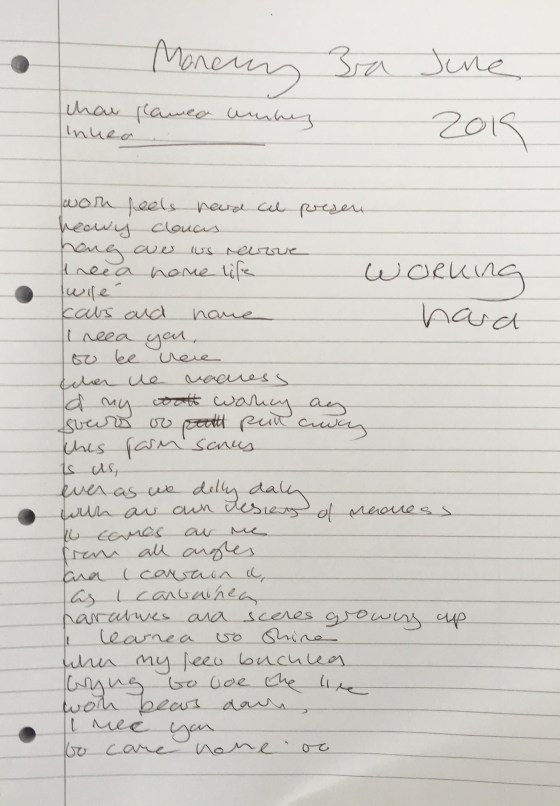 Monday 3rd June
2019
inked
work feels hard at present
heavy clouds
hang over us
I need home life
wife
cats and home
working
hard
I need you,
to be there
when the madness
of my working day
starts to pull away
this farm
is us,
even as we dilly dally
with our own designs of madness
it comes at me
from all angles
and I contain it,
as I contained
narratives and scenes growing up
I learned to shine
when my feet buckled
trying to toe the line
work bears down,
I need you
to come home to